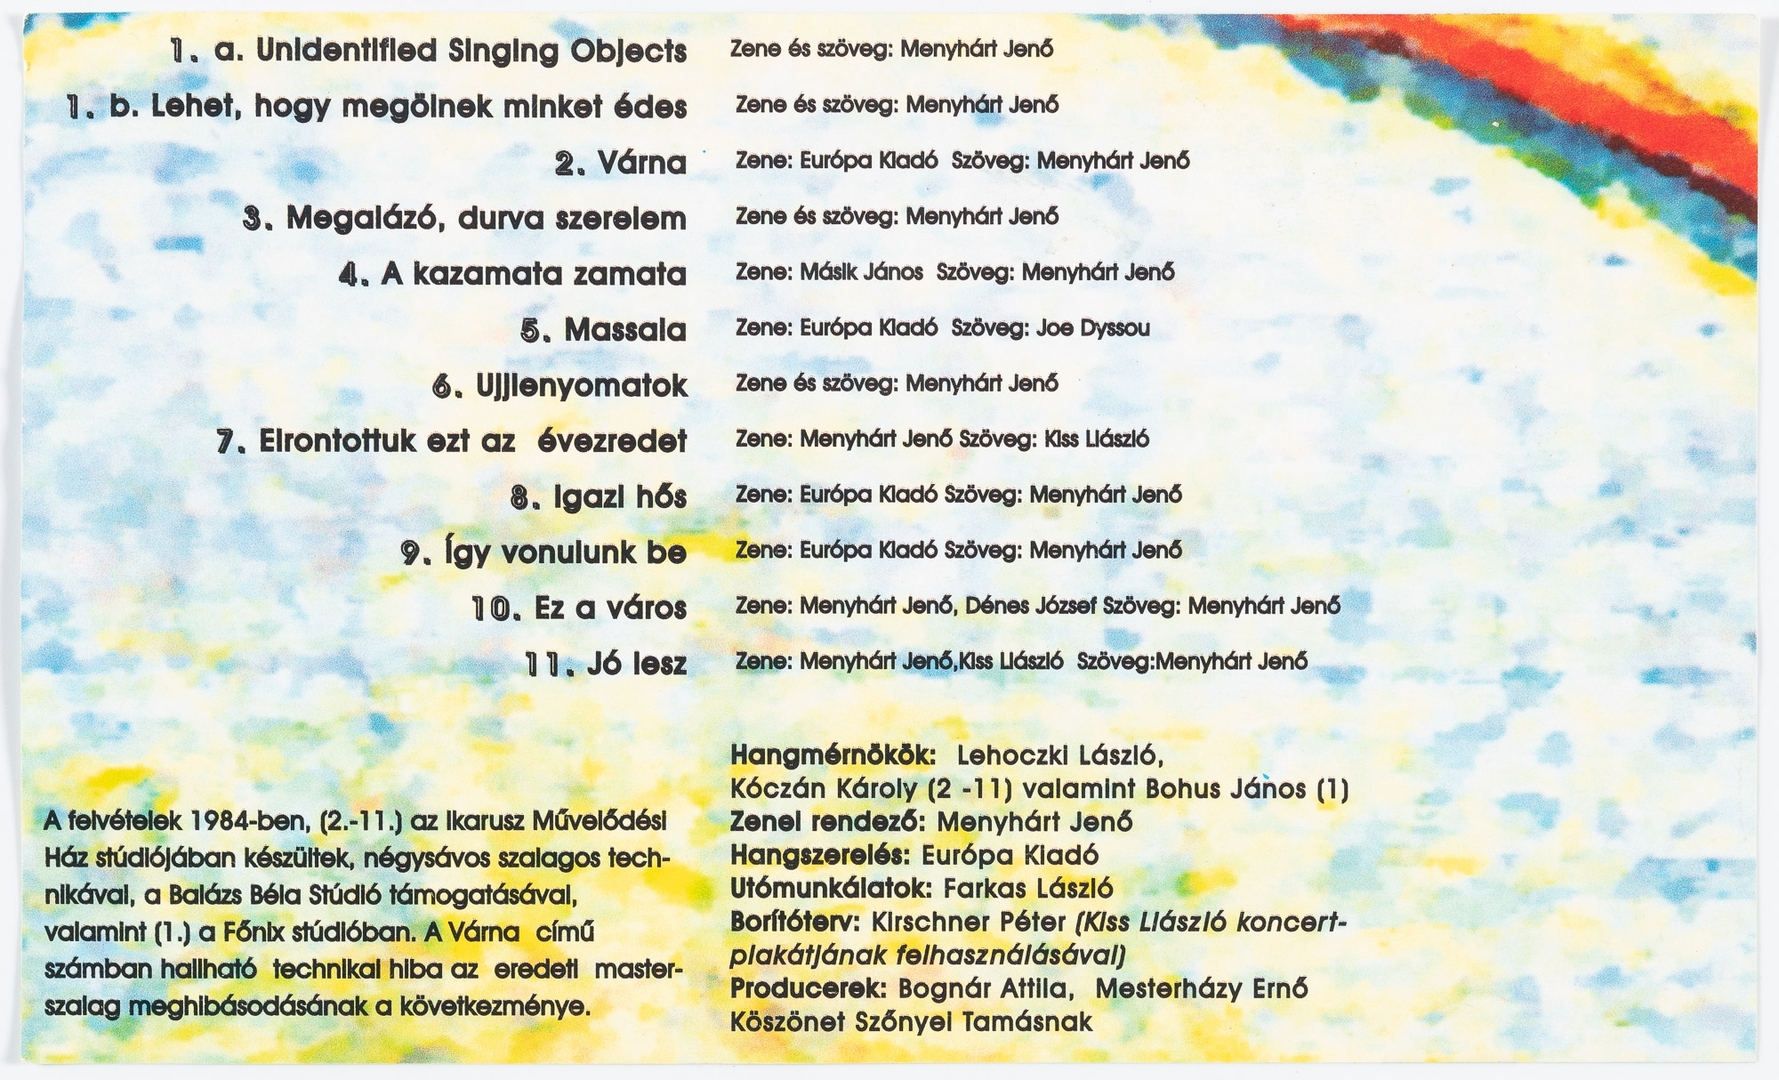 1. a. Unidentified Singing Objects Zene és szöveg: Menyhárt Jenő
1. b. Lehet, hogy megölnek minket édes Zene és szöveg: Menyhárt Jenő
2. Várna Zene: Európa Kiadó Szöveg: Menyhárt Jenő
3. Megalázó, durva szerelem Zene és szöveg: Menyhárt Jenő
4. A kazamata zamata Zene: Másik János Szöveg: Menyhárt Jenő
5. Massala Zene: Európa Kiadó Szöveg: Joe Dyssou
6. Ujjlenyomatok Zene és szöveg: Menyhárt Jenő
7. Elrontottuk ezt az évezredet Zene: Menyhárt Jenő Szöveg: Kiss Llászló
8. Igazi hős Zene: Európa Kiadó Szöveg: Menyhárt Jenő
9. Így vonulunk be Zene: Európa Kiadó Szöveg: Menyhárt Jenő
10. Ez a város Zene: Menyhárt Jenő, Dénes József Szöveg: Menyhárt Jenő
11. Jó lesz Zene: Menyhárt Jenő,Kiss Llászló Szöveg:Menyhárt Jenő
A felvételek 1984-ben, (2.-11.) az Ikarusz Művelődési
Ház stúdiójában készültek, négysávos szalagos tech-
nikával, a Balázs Béla Stúdió támogatásával,
valamint (1.) a Főnix stúdióban. A Várna című
számban hallható technikai hiba az eredeti master-
szalag meghibásodásának a következménye.
Hangmérnökök: Lehoczki László,
Kóczán Károly (2 -11) valamint Bohus János (1)
Zenei rendező: Menyhárt Jenő
Hangszerelés: Európa Kiadó
Utómunkálatok: Farkas László
Borítóterv: Kirschner Péter (Kiss Llászló koncert-
plakátjának felhasználásával)
Producerek: Bognár Attila, Mesterházy Ernő
Köszönet Szőnyei Tamásnak